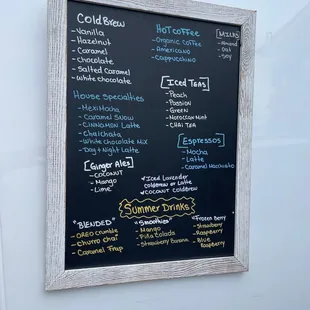 Cold Brew
- Vanilla
- Hazelnut
- Caramel
- chocolate
- Salted Caramel
- White chocolate
House Specialties
- Mexi Mocha
- Caramel Snow
- CINNAMON Latte
- Chai Chata
- White chocolate Mix
- Day & Night Latte
Ginger Ales
- COCONUT
- Mango
- Lime
HOT COFFEE
- Organic Coffee
- AMERICANO
- Cappuccino
MILKS
- Almond
- Oat
- Soy
Iced Teas
- Peach
- Passion
- Green
- Moroccan Mint
- CHAI TEA
Espressos
- Mocha
- Latte
- Caramel Macchiato
Iced Lavender
coldbrew or Latte
Coconut coldbrew
Summer Drinks
"BLENDED"
- OREO crumble
- churro chai
- Caramel Frap
"Smoothies"
- Mango
- Piña Colada
- Strawberry Banana
"Frozen Berry"
- Strawberry
- Raspberry
- Blue Raspberry